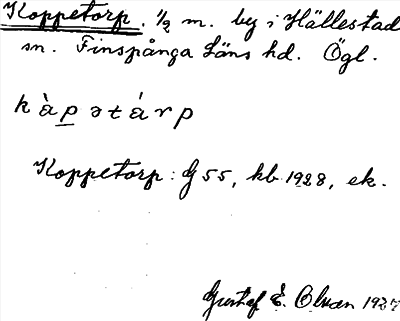 Koppetorp. 1/2 m. by i Hällestad
sn. Finspånga Läns hd. Ögl.
kàpətárp
Koppetorp: G 55, kb 1928, ek.
Gustaf E. Olsson 1927